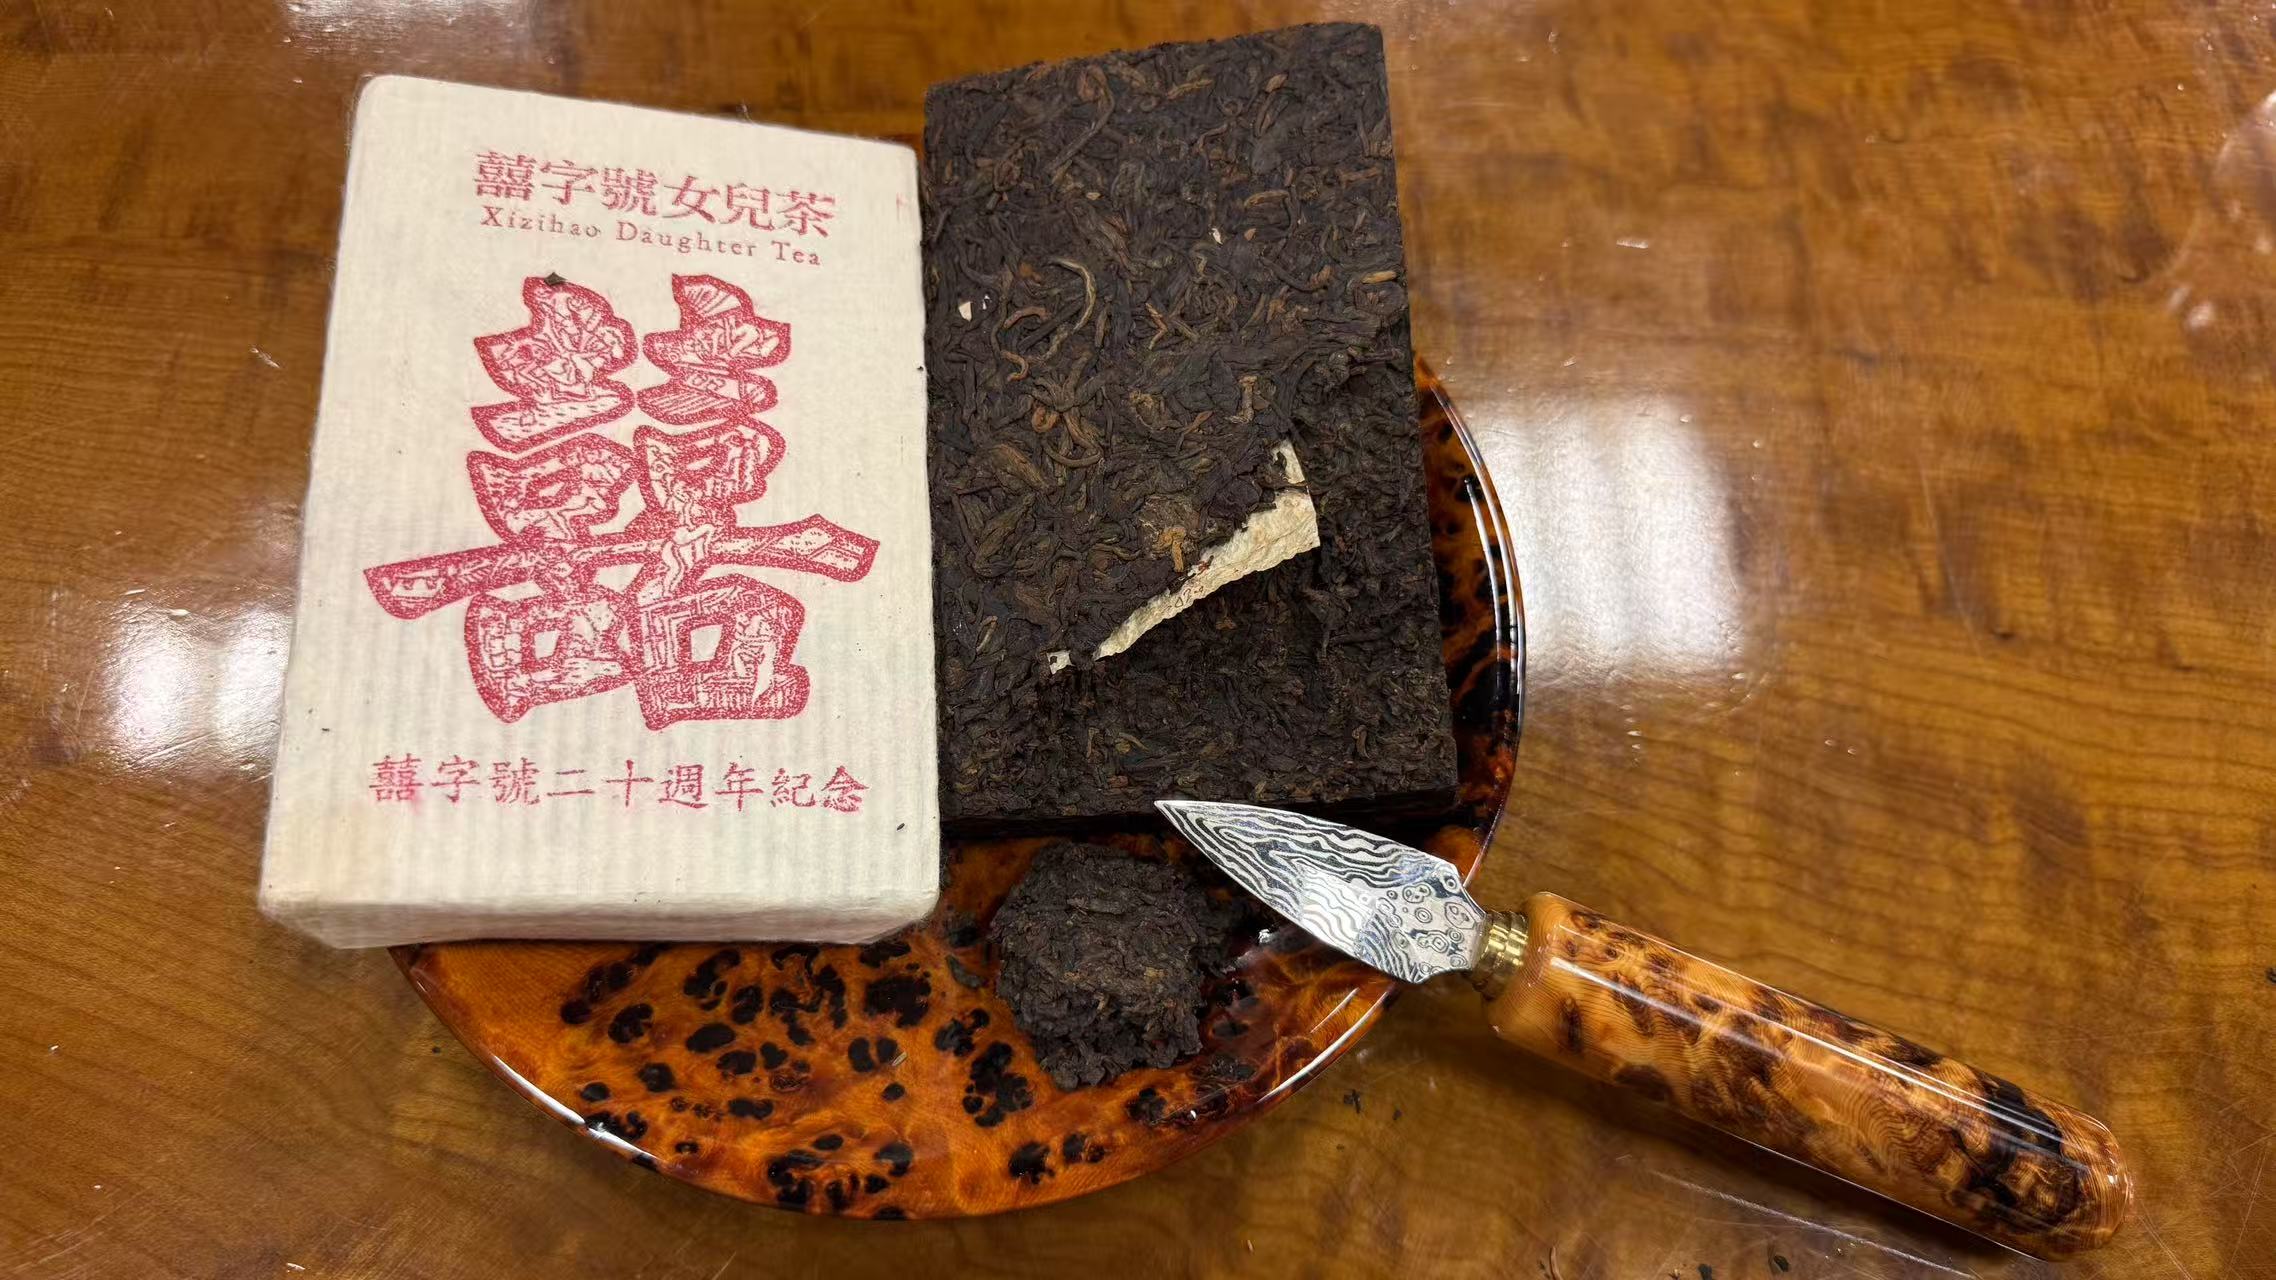 囍字號女兒茶
Xizihao Daughter Tea
囍
囍字號二十週年紀念